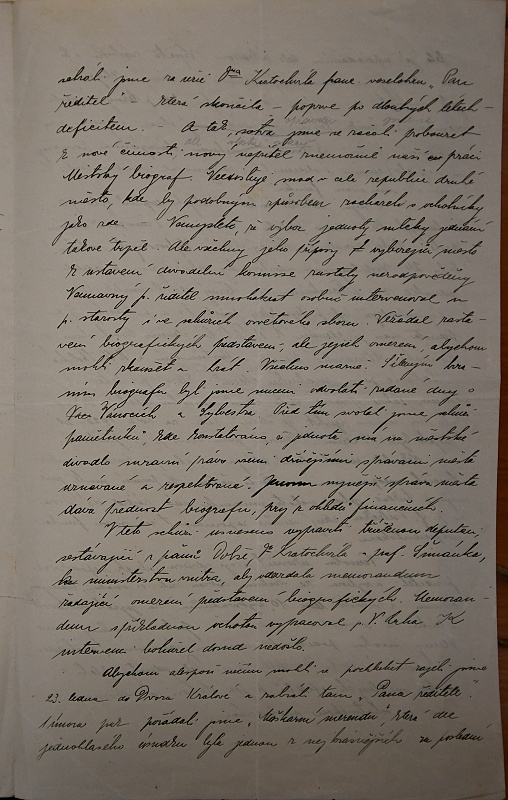 sehráli jsme za režie Dra Kratochvíla franc. veselohru „Pan
ředitel", která skončila – poprvé po dlouhých letech –
deficitem. – A tak, sotva jsme se začali probouzet
k nové činnosti, nový nepřítel znemožnil naši práci
Městský biograf. Neexistuje snad v celé republice druhé
město, kde by podobným způsobem zacházeli s ochotníky
jako zde – Nemyslete, že výbor jednoty mlčky jednání
takové trpěl. Ale všechny jeho přípisy vybízející město
k ustavení divadelní komise zůstaly nezodpověděny
p. ředitel mnohokrát osobně intervenoval u
p. starosty i ve schůzích osvětového sboru. Nežádal zasta-
vení biografických představení, ale jejich omezení, abychom
mohli zkoušet a hrát. Všechno marné.
biografu byli jsme nuceni odvolati zadané dny o
Vánocích a Sylvestra. Před tím svolal jsme schůzi
pamětníků, kde konstatováno, že jednota má na městské
divadlo morální právo všemi dřívějšími správami města
uznávané a respektované. nynější správa města
dává přednost biografu, prý z ohledů finančních.
V této schůzi usneseno vypraviti tříčlennou deputaci,
sestávající z pánů Dra Kratochvíla a prof. Šimánka,
ku ministerstvu vnitra, aby odevzdala memorandum
žádající omezení představení biografických. Memoran-
dum s příkladnou ochotou vypracoval p. K
intervenci bohužel dosud nedošlo.
Abychom alespoň něčím mohli se pochlubit zajeli jsme
23. ledna do Dvora Králové a sehráli tam „Pana ředitele".
února pak pořádali jsme „Maškarní merendu", která dle
jednohlasého úsudku byla jednou z nejkrásnějších za poslední